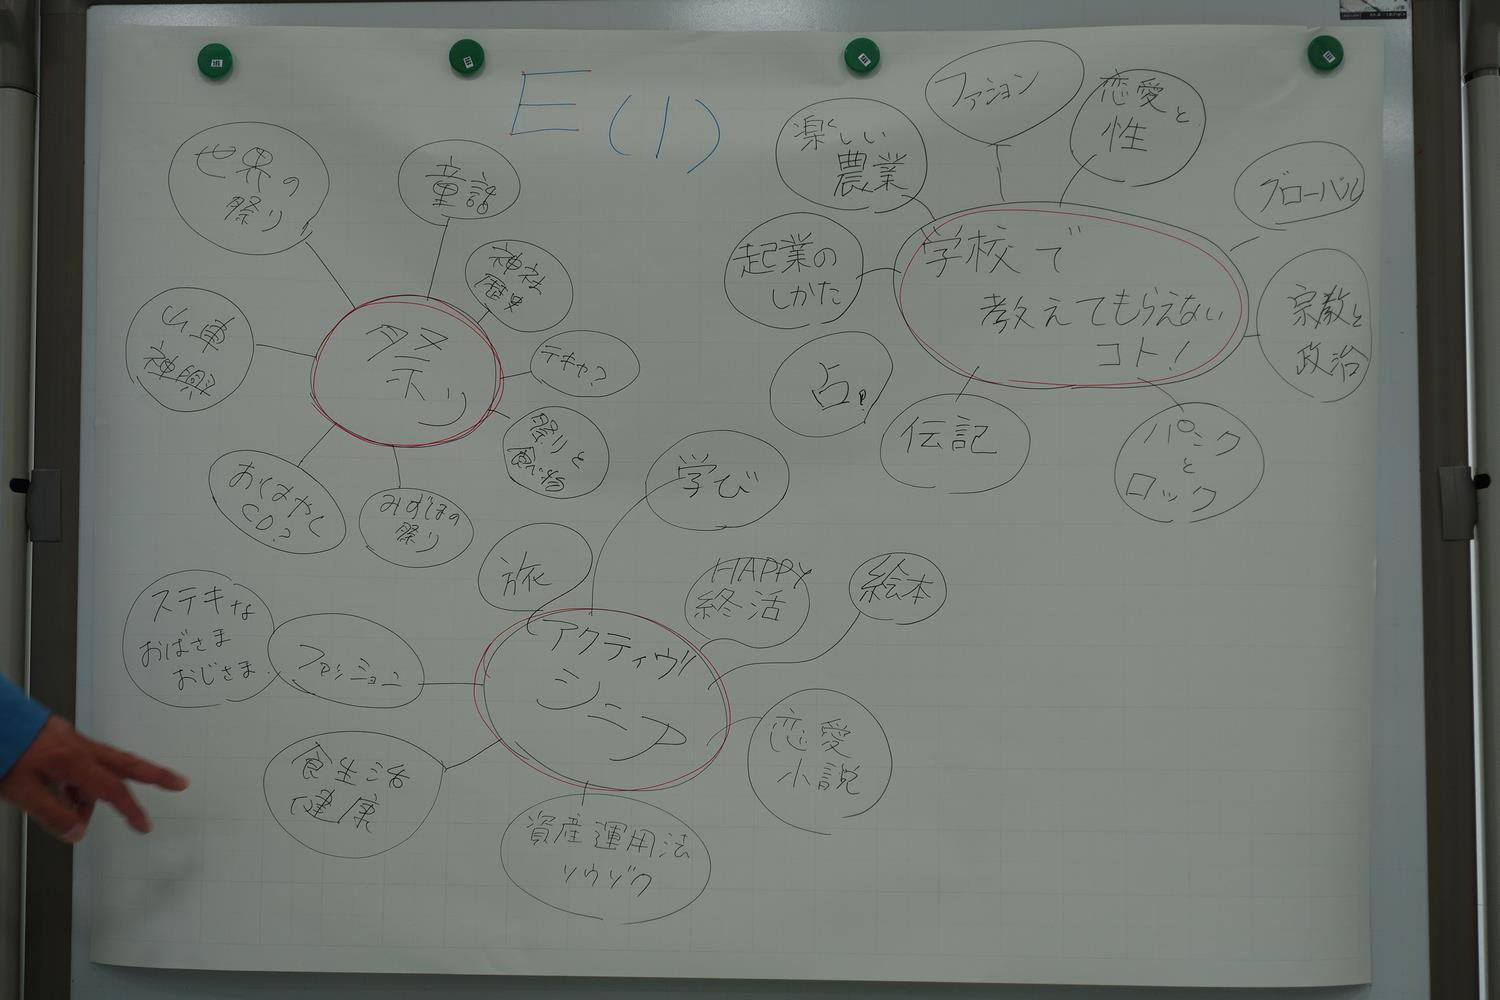 E(1)
世界の
祭り
童話
神社
歴史
山車
神輿
祭り
テキヤ?
祭りと
食べ物
おくみやく
CD?
みずほの
祭り
ファション
恋愛と
性
楽しい
農業
グローバル
起業の
しかた
学校で
教えてもらえない
コト!
宗教と
政治
占い
伝記
パンク
と
ロック
学び
旅
HAPPY
終活
絵本
アクティヴ
シニア
ステキな
おばさま
おじさま
ファッション
恋愛
小説
食生活
健康
資産運用法
ソウゾク